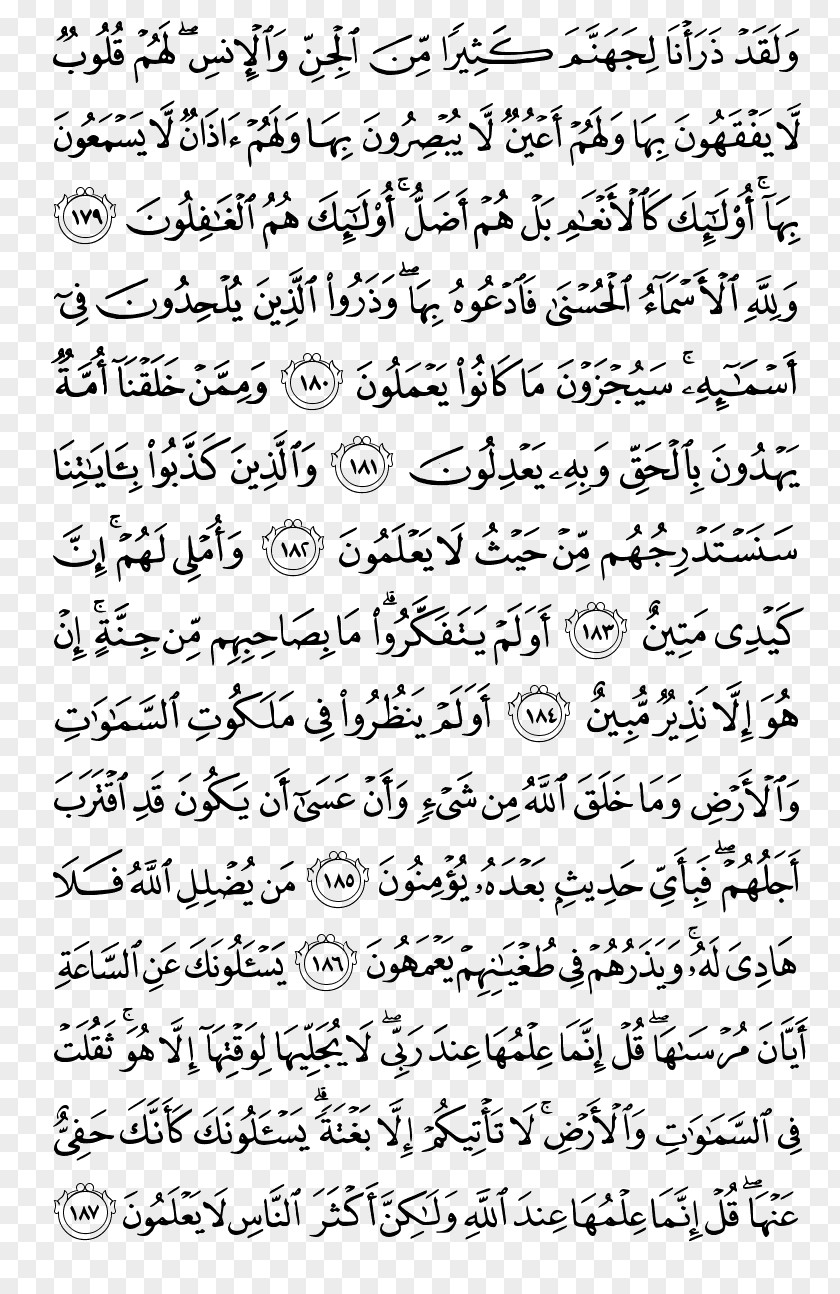 وَلَقَدۡ ذَرَأۡنَا لِجَهَنَّمَ كَثِيرٗا مِّنَ ٱلۡجِنِّ وَٱلۡإِنسِۖ لَهُمۡ قُلُوبٞ
لَّا يَفۡقَهُونَ بِهَا وَلَهُمۡ أَعۡيُنٞ لَّا يُبۡصِرُونَ بِهَا وَلَهُمۡ ءَاذَانٞ لَّا يَسۡمَعُونَ
بِهَآۚ أُوْلَٰٓئِكَ كَٱلۡأَنۡعَٰمِ بَلۡ هُمۡ أَضَلُّۚ أُوْلَٰٓئِكَ هُمُ ٱلۡغَٰفِلُونَ ١٧٩
وَلِلَّهِ ٱلۡأَسۡمَآءُ ٱلۡحُسۡنَىٰ فَٱدۡعُوهُ بِهَاۖ وَذَرُواْ ٱلَّذِينَ يُلۡحِدُونَ فِيٓ
أَسۡمَٰٓئِهِۦۚ سَيُجۡزَوۡنَ مَا كَانُواْ يَعۡمَلُونَ ١٨٠ وَمِمَّنۡ خَلَقۡنَآ أُمَّةٞ
يَهۡدُونَ بِٱلۡحَقِّ وَبِهِۦ يَعۡدِلُونَ ١٨١ وَٱلَّذِينَ كَذَّبُواْ بِـَٔايَٰتِنَا
سَنَسۡتَدۡرِجُهُم مِّنۡ حَيۡثُ لَا يَعۡلَمُونَ ١٨٢ وَأُمۡلِي لَهُمۡۚ إِنَّ
كَيۡدِي مَتِينٌ ١٨٣ أَوَلَمۡ يَتَفَكَّرُواْۗ مَا بِصَاحِبِهِم مِّن جِنَّةٍۚ إِنۡ
هُوَ إِلَّا نَذِيرٞ مُّبِينٌ ١٨٤ أَوَلَمۡ يَنظُرُواْ فِي مَلَكُوتِ ٱلسَّمَٰوَٰتِ
وَٱلۡأَرۡضِ وَمَا خَلَقَ ٱللَّهُ مِن شَيۡءٖ وَأَنۡ عَسَىٰٓ أَن يَكُونَ قَدِ ٱقۡتَرَبَ
أَجَلُهُمۡۖ فَبِأَيِّ حَدِيثِۭ بَعۡدَهُۥ يُؤۡمِنُونَ ١٨٥ مَن يُضۡلِلِ ٱللَّهُ فَلَا
هَادِيَ لَهُۥۚ وَيَذَرُهُمۡ فِي طُغۡيَٰنِهِمۡ يَعۡمَهُونَ ١٨٦ يَسۡـَٔلُونَكَ عَنِ ٱلسَّاعَةِ
أَيَّانَ مُرۡسَىٰهَاۖ قُلۡ إِنَّمَا عِلۡمُهَا عِندَ رَبِّيۖ لَا يُجَلِّيهَا لِوَقۡتِهَآ إِلَّا هُوَۚ ثَقُلَتۡ
فِي ٱلسَّمَٰوَٰتِ وَٱلۡأَرۡضِۚ لَا تَأۡتِيكُمۡ إِلَّا بَغۡتَةٗۗ يَسۡـَٔلُونَكَ كَأَنَّكَ حَفِيٌّ
عَنۡهَاۖ قُلۡ إِنَّمَا عِلۡمُهَا عِندَ ٱللَّهِ وَلَٰكِنَّ أَكۡثَرَ ٱلنَّاسِ لَا يَعۡلَمُونَ ١٨٧